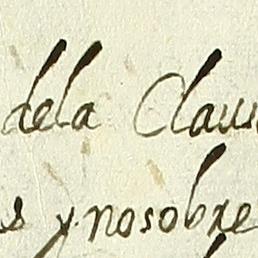 dela Claus
s y nosobre